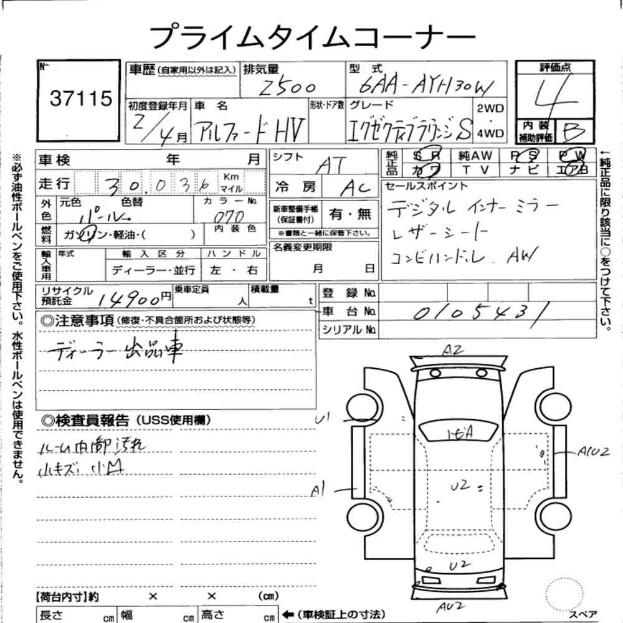 プライムタイムコーナー
No
37115
車歴 (自家用以外は記入)
排気量
2500
型式
6AA-AYH30W
評価点
4
内装補助評価 B
初度登録年月
2/4月
車名
アルファードHV
形状・ドア数
グレード
エグゼクティブラウンジS
2WD
・
4WD
車検 年 月
走行 30.036 Km マイル
シフト AT
冷房 AC
純正品 SR 純AW PS PW
カワ TV ナビ エアB
外色 元色 色替 カラーNo.
パール 070
燃料 ガソリン・軽油・( ) 内装色
新車整備手帳(保証書付) 有・無
※書類と一緒に保管下さい。
名義変更期限
月 日
セールスポイント
デジタルインナーミラー
レザーシート
コンビハンドル AW
輸入車用 年式 輸入区分 ハンドル
ディーラー・並行 左・右
リサイクル預託金 14900円
乗車定員 人
積載量 t
登録No.
車台No. 0105431
シリアルNo.
◎注意事項 (修復・不具合箇所および状態等)
ディーラー出品車
◎検査員報告 (USS使用欄)
ルーム内部汚れ
小キズ 小凹
A2
U1
A1
U2
A1U2
U2
AU2
スペア
【荷台内寸】約 × × (cm)
長さ cm 幅 cm 高さ cm
←(車検証上の寸法)
※必ず油性ボールペンをご使用下さい。水性ボールペンは使用できません。
←純正品に限り該当に○をつけて下さい。